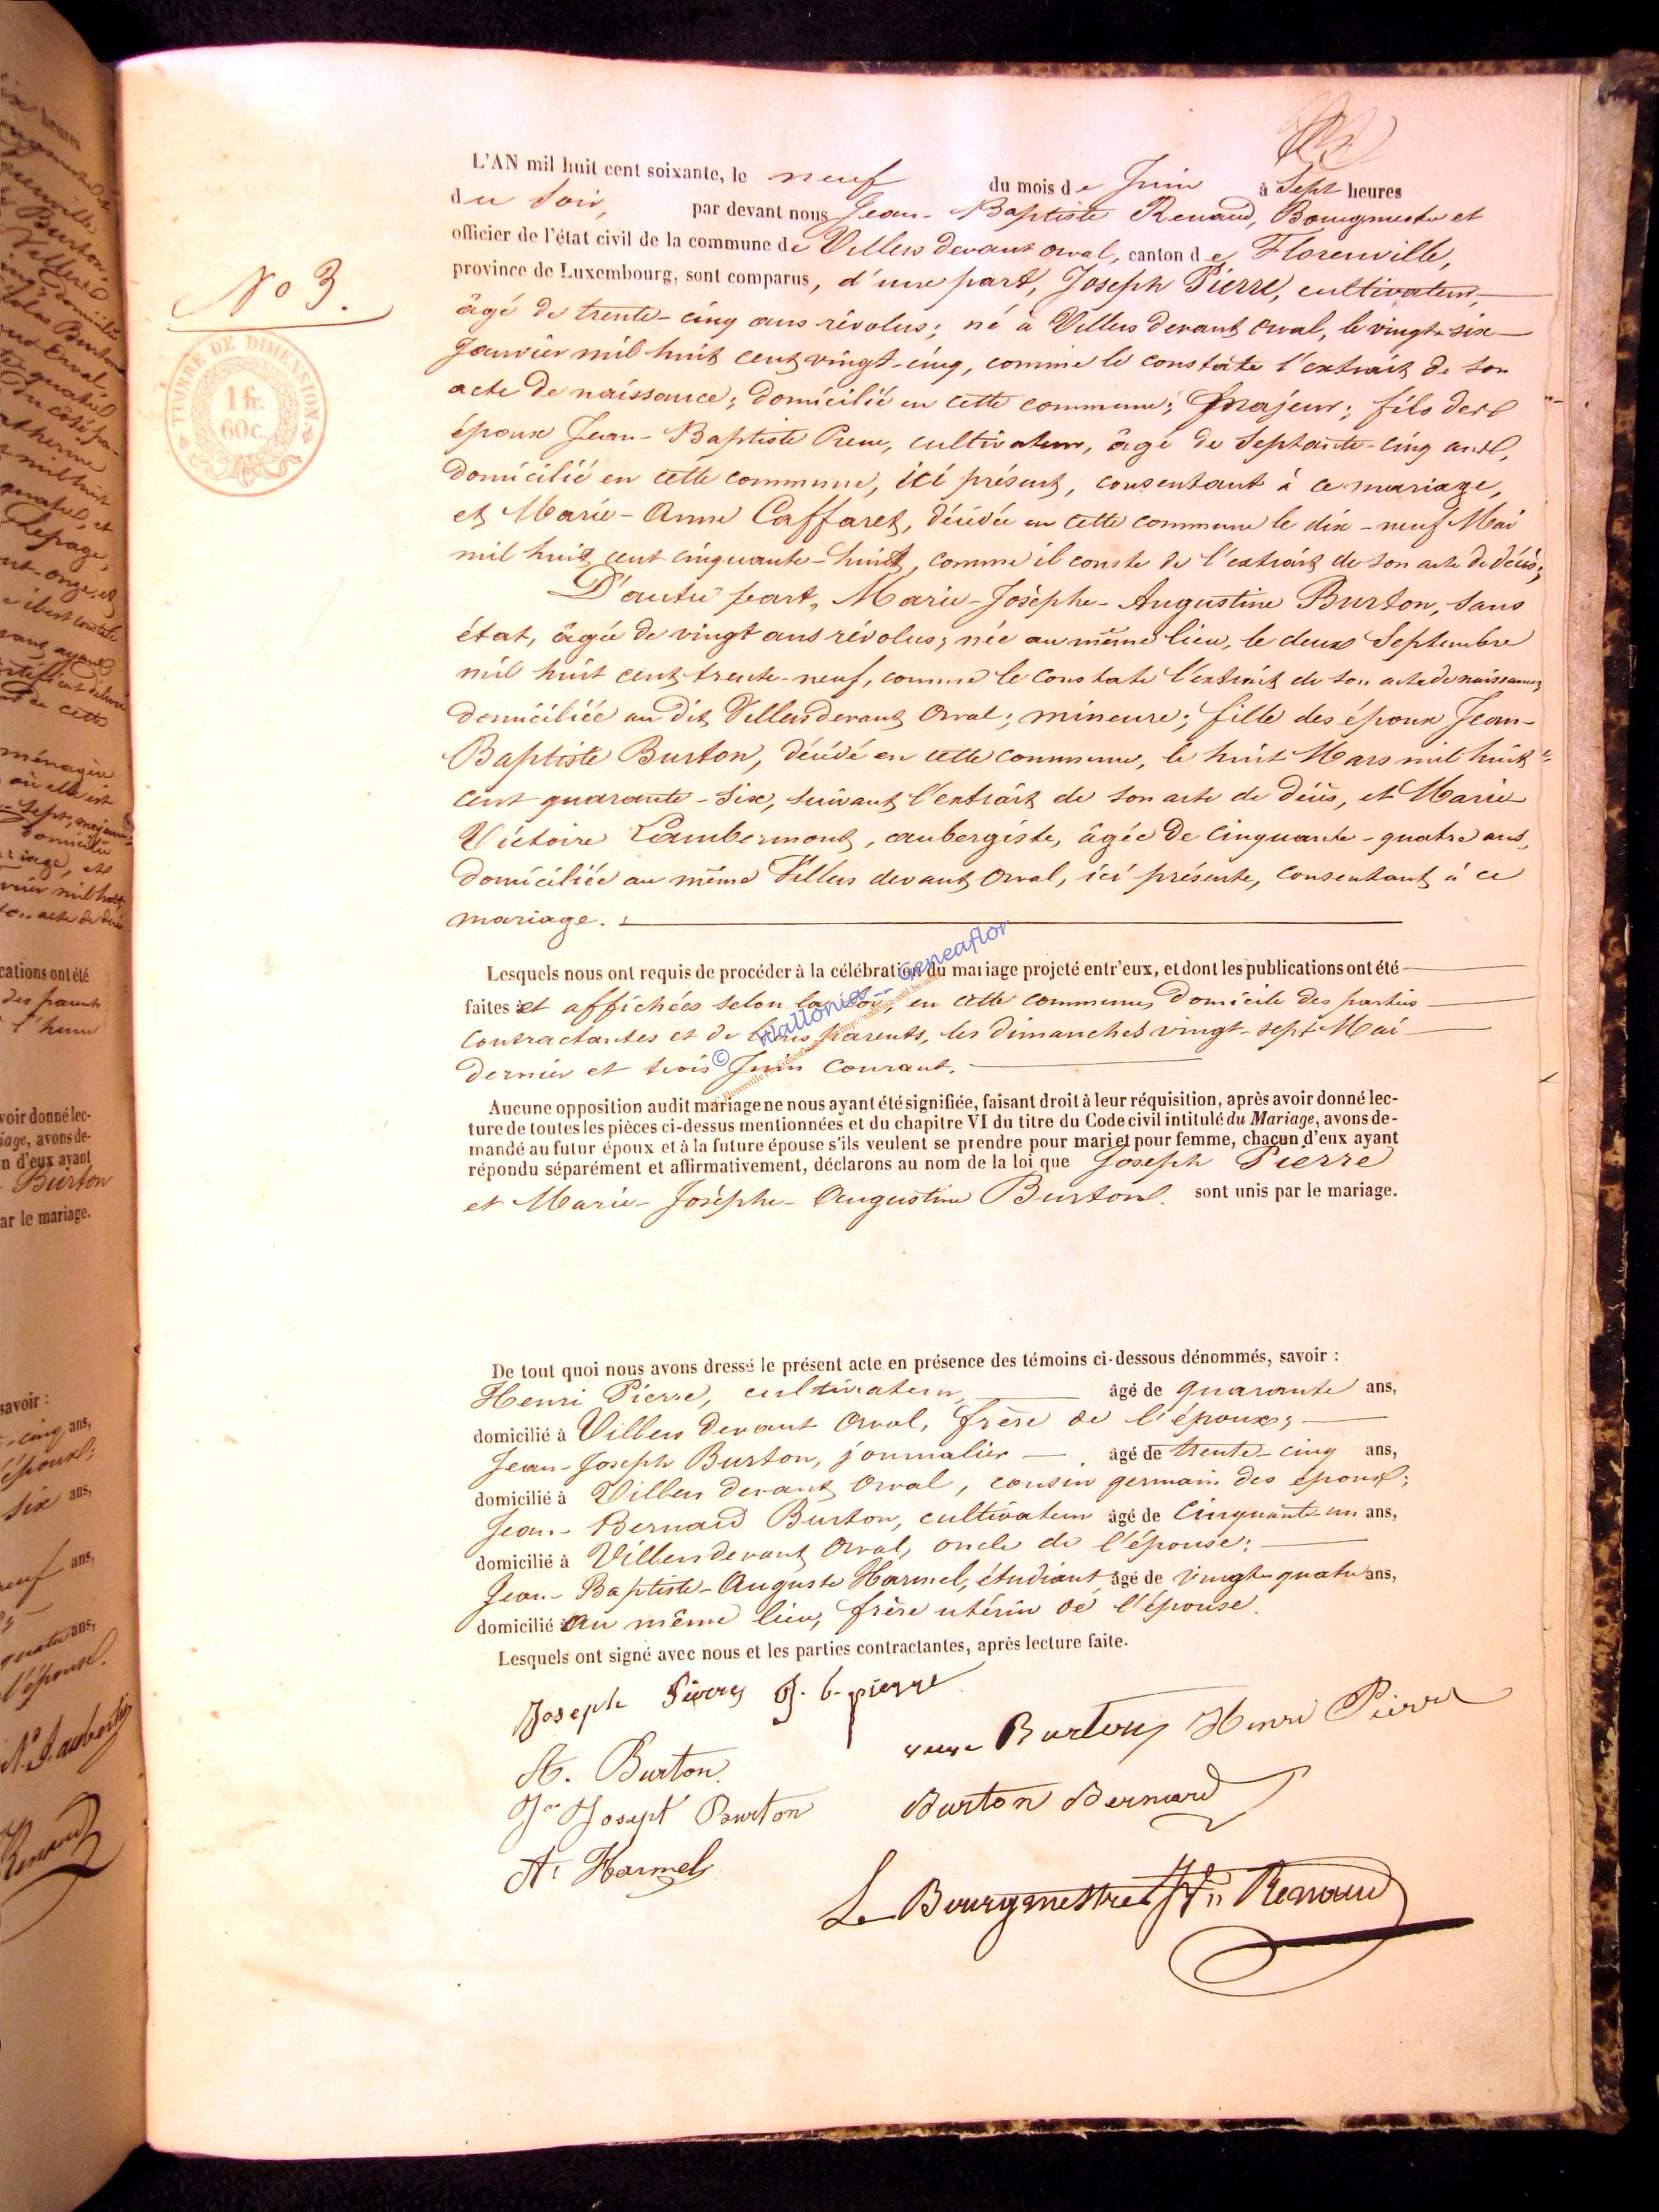 L'AN mil huit cent soixante, le neuf du mois de Juin à Sept heures
du Soir, par devant nous Jean-Baptiste Renaud, Bourgmestre et
officier de l'état civil de la commune de Villers devant orval, canton de Florenville,
province de Luxembourg, sont comparus, d'une part, Joseph Pierre, cultivateur,
âgé de trente-cinq ans révolus; né à Villers devant orval, le vingt-six
Janvier mil huit cent vingt-cinq, comme le constate l'extrait de son
acte de naissance; domicilié en cette commune; majeur; fils des
époux Jean-Baptiste Pierre, cultivateur, âgé de Septante-cinq ans,
domicilié en cette commune, ici présent, consentant à ce mariage,
et Marie-Anne Caffaret, décédée en cette commune le dix-neuf Mai
mil huit cent cinquante-huit, comme il conste de l'extrait de son acte de décès;
D'autre part, Marie-Josèphe-Augustine Burton, sans
état, âgée de vingt ans révolus; née au même lieu, le deux Septembre
mil huit cent trente-neuf, comme le constate l'extrait de son acte de naissance;
domiciliée au dit Villers devant Orval; mineure; fille des époux Jean-
Baptiste Burton, décédé en cette commune, le huit Mars mil huit
cent quarante-six, suivant l'extrait de son acte de décès, et Marie
Victoire Lambermont, aubergiste, âgée de cinquante-quatre ans,
domiciliée au même Villers devant Orval, ici présente, consentant à ce
mariage.
No 3.
TIMBRE DE DIMENSION
1 fr.
60 c.
Lesquels nous ont requis de procéder à la célébration du mariage projeté entr'eux, et dont les publications ont été
faites et affichées selon la loi, en cette commune, domicile des parties
contractantes et de leurs parents, les dimanches vingt-sept Mai
dernier et trois Juin courant.
© Wallonia -- Geneaflor
Aucune opposition audit mariage ne nous ayant été signifiée, faisant droit à leur réquisition, après avoir donné lec-
ture de toutes les pièces ci-dessus mentionnées et du chapitre VI du titre du Code civil intitulé du Mariage, avons de-
mandé au futur époux et à la future épouse s'ils veulent se prendre pour mari et pour femme, chacun d'eux ayant
répondu séparément et affirmativement, déclarons au nom de la loi que Joseph Pierre
et Marie-Josèphe-Augustine Burton. sont unis par le mariage.
De tout quoi nous avons dressé le présent acte en présence des témoins ci-dessous dénommés, savoir :
Henri Pierre, cultivateur, âgé de quarante ans,
domicilié à Villers devant Orval, frère de l'époux;
Jean-Joseph Burton, journalier âgé de trente-cinq ans,
domicilié à Villers devant Orval, cousin germain des époux;
Jean-Bernard Burton, cultivateur âgé de Cinquante-un ans,
domicilié à Villers devant Orval, oncle de l'épouse;
Jean-Baptiste-Auguste Harmel, étudiant, âgé de vingt-quatre ans,
domicilié au même lieu, frère utérin de l'épouse.
Lesquels ont signé avec nous et les parties contractantes, après lecture faite.
Joseph Pierre J. b. pierre
veuve Burton Henri Pierre
A. Burton
Jn Josept Burton Burton Bernard
A. Harmel
Le Bourgmestre Renaud